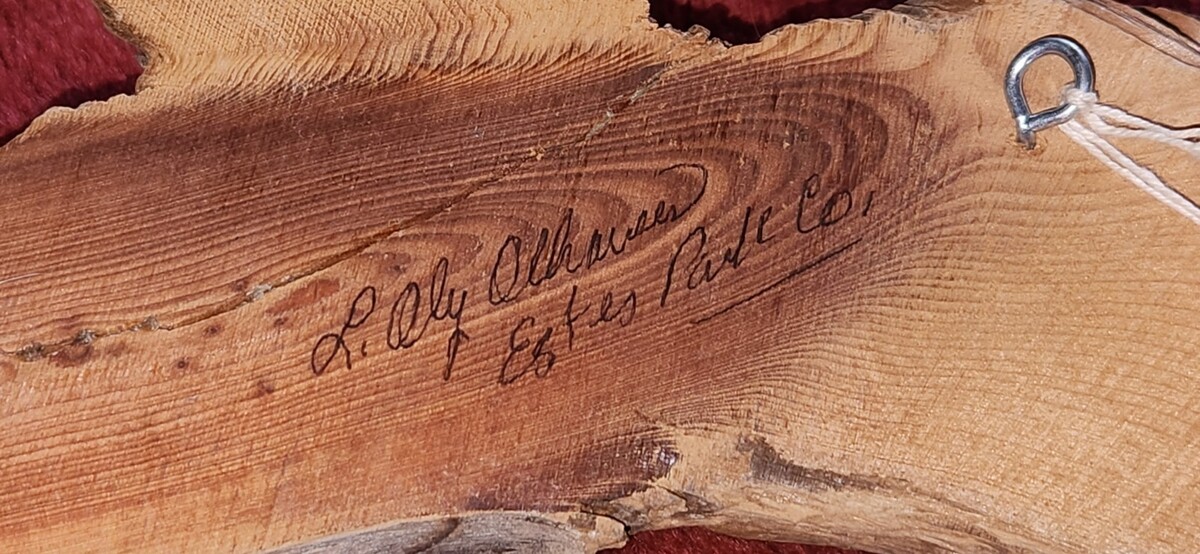 L. Oly Olhausen
Estes Park Co.